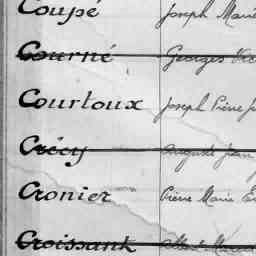 Coupé Joseph Marie
Courné Georges
Courtoux Joseph Pierre
Crécy Auguste Jean
Cronier Pierre Marie
Croissant Albert